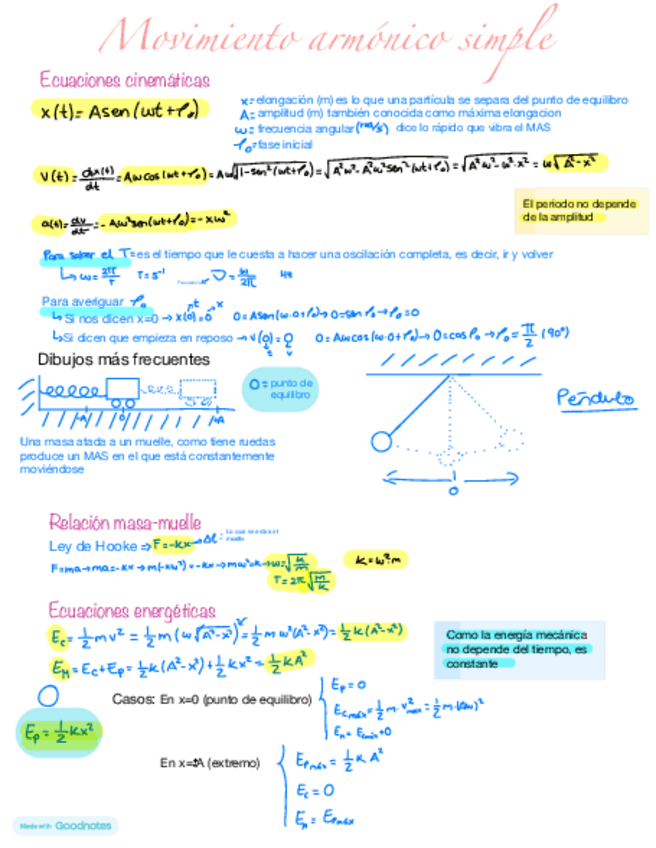 Movimiento armónico simple
Ecuaciones cinemáticas
x(t) = A sen(ωt + φ₀)
x = elongación (m) es lo que una partícula se separa del punto de equilibro
A = amplitud (m) también conocida como máxima elongacion
ω = frecuencia angular (rad/s) dice lo rápido que vibra el MAS
φ₀ = fase inicial
v(t) = dx(t)/dt = Aω cos(ωt + φ₀) = Aω√(1-sen²(ωt+φ₀)) = √(A²ω² - A²ω²sen²(ωt+φ₀)) = √(A²ω² - ω²x²) = ω√(A²-x²)
El periodo no depende
de la amplitud
a(t) = dv/dt = -Aω²sen(ωt+φ₀) = -xω²
Para saber el T = es el tiempo que le cuesta a hacer una oscilación completa, es decir, ir y volver
↳ ω = 2π/T T = s⁻¹ Frecuencia ν = ω/2π Hz
Para averiguar φ₀
↳ Si nos dicen x=0 → x(0)=0 t x 0 = A sen(ω·0+φ₀) → 0 = sen φ₀ → φ₀ = 0
↳ Si dicen que empieza en reposo → v(0) = 0 t v 0 = Aω cos(ω·0+φ₀) → 0 = cos φ₀ → φ₀ = π/2 (90°)
Dibujos más frecuentes
0 = punto de
equilibro
Péndulo
-A 0 +A
Una masa atada a un muelle, como tiene ruedas
produce un MAS en el que está constantemente
moviéndose
0
Relación masa-muelle
Ley de Hooke ⇒ F = -kx → Δl: Lo que se estira el
muelle
F = ma → ma = -kx → m(-xω²) = -kx → mω² = k → ω = √(k/m)
T = 2π√(m/k)
k = ω²·m
Ecuaciones energéticas
Ec = ½mv² = ½m(ω√(A²-x²))² = ½mω²(A²-x²) = ½k(A²-x²)
EM = Ec + Ep = ½k(A²-x²) + ½kx² = ½kA²
Como la energía mecánica
no depende del tiempo, es
constante
Ep = ½kx²
Casos: En x=0 (punto de equilibro)
Ep = 0
Ec máx = ½m·v²max = ½m·(Aω)²
Em = Ecmáx + 0
En x=±A (extremo)
Epmáx = ½kA²
Ec = 0
Em = Epmáx
Made with Goodnotes